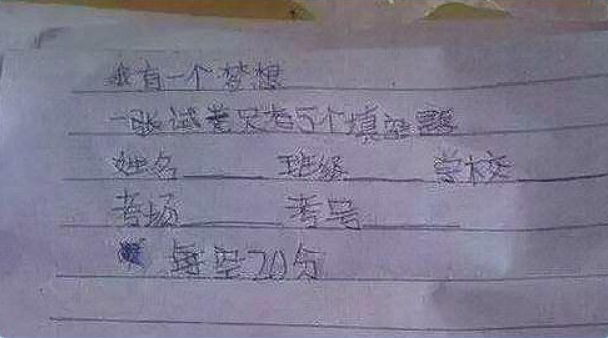 我有一个梦想
一张试卷只考5个填空题
姓名______ 班级______ 学校
考场______ 考号______
每空20分